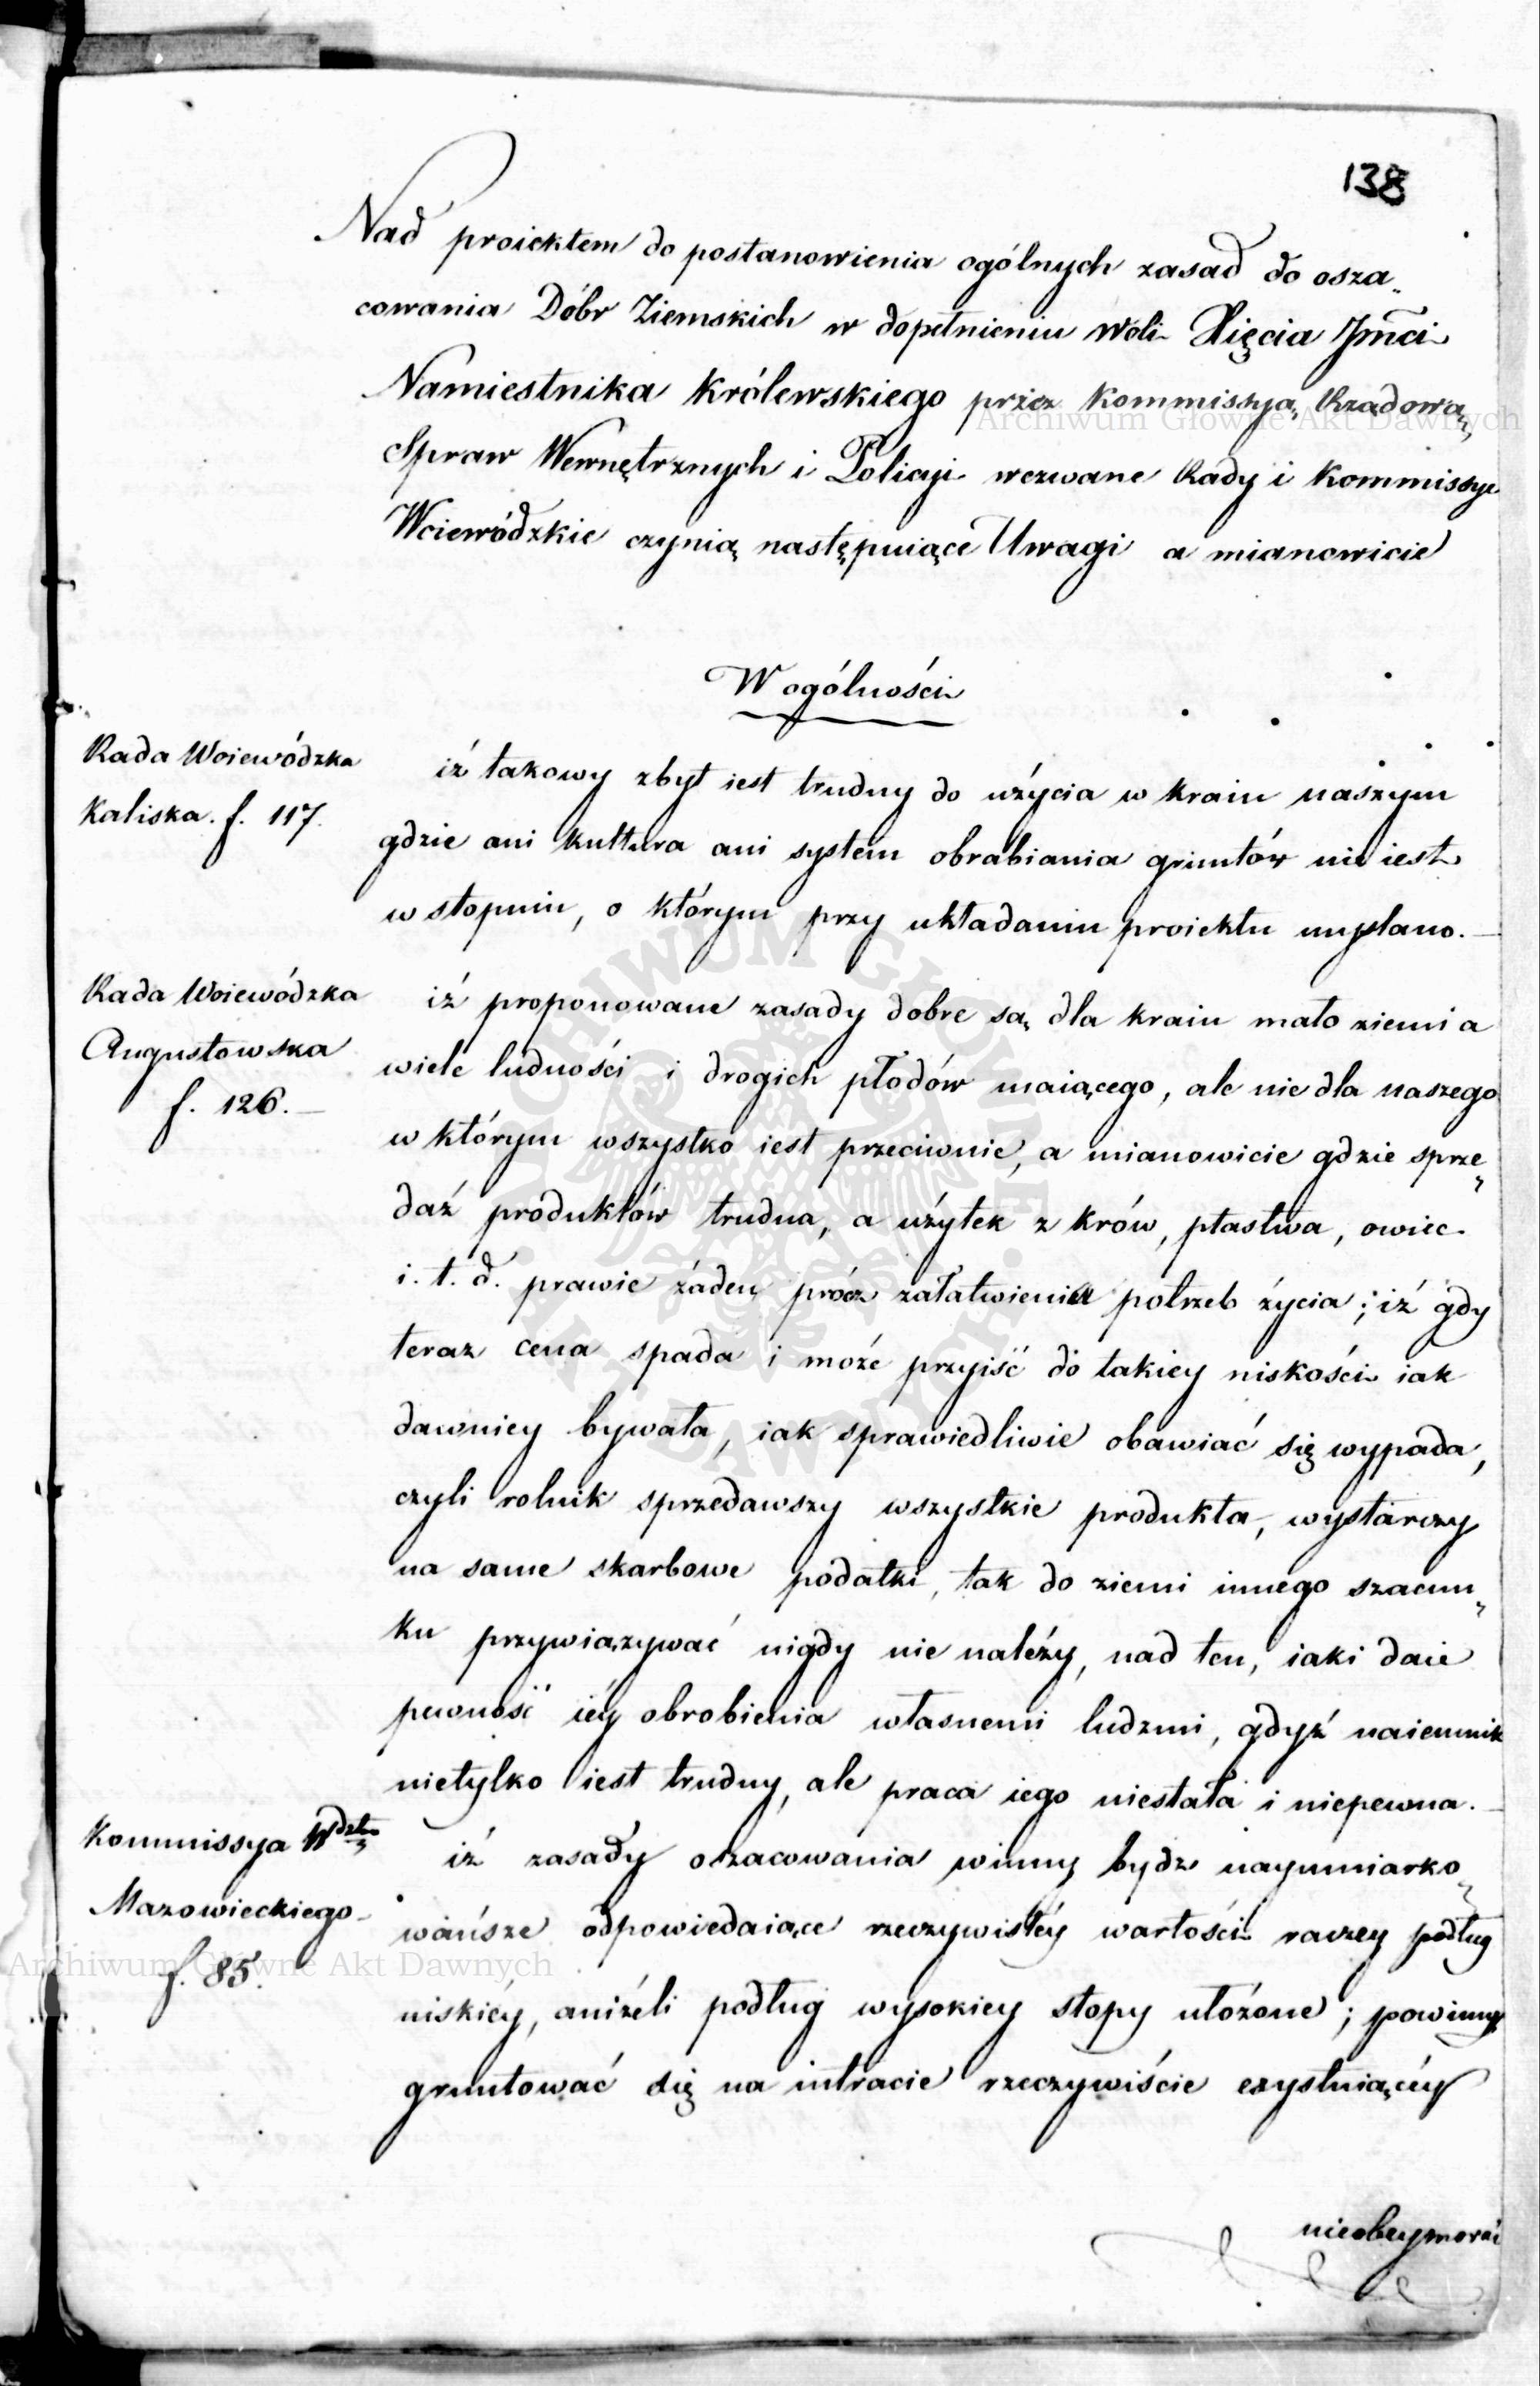 138
Nad proiektem do postanowienia ogólnych zasad do osza„
cowania Dóbr Ziemskich w dopełnieniu Woli Xięcia Jmci
Namiestnika Królewskiego przez Kommissyą Rządową
Spraw Wewnętrznych i Policyi wezwane Rady i Kommissye
Woiewódzkie czynią następuiące Uwagi a mianowicie
W ogólności
Rada Woiewódzka
Kaliska. f. 117.
iż takowy zbyt iest trudny do użycia w kraiu naszym
gdzie ani kultura ani system obrabiania gruntów nie iest
w stopniu, o którym przy układaniu proiektu myslano.—
Rada Woiewódzka
Augustowska
f. 126.—
iż proponowane zasady dobre są dla kraiu mało ziemi a
wiele ludności i drogich płodów maiącego, ale nie dla naszego
w którym wszystko iest przeciwnie, a mianowicie gdzie sprze„
daż produktów trudna, a użytek z krów, ptastwa, owiec
i. t. d. prawie żaden prócz załatwienia potrzeb życia; iż gdy
teraz cena spada i może przyiść do takiey niskości iak
dawniey bywała, iak sprawiedliwie obawiać się wypada,
czyli rolnik sprzedawszy wszystkie produkta, wystarczy
na same skarbowe podatki, tak do ziemi innego szacun„
ku przywiązywać nigdy nie należy, nad ten, iaki daie
pewność iéy obrobienia własnemi ludzmi, gdyż naiemnik
nietylko iest trudny, ale praca iego niestała i niepewna.—
Kommissya Wdztwa
Mazowieckiego
f. 85.
iż zasady oszacowania winny bydz nayumiarko„
wańsze odpowiedaiące rzeczywistéy wartości raczey podług
niskiéy, aniżeli podług wysokiey stopy ułożone; powinny
gruntować się na intracie rzeczywiście exystuiącéy
nieobeymować
Archiwum Główne Akt Dawnych
Archiwum Główne Akt Dawnych
ARCHIWUM GŁÓWNE AKT DAWNYCH